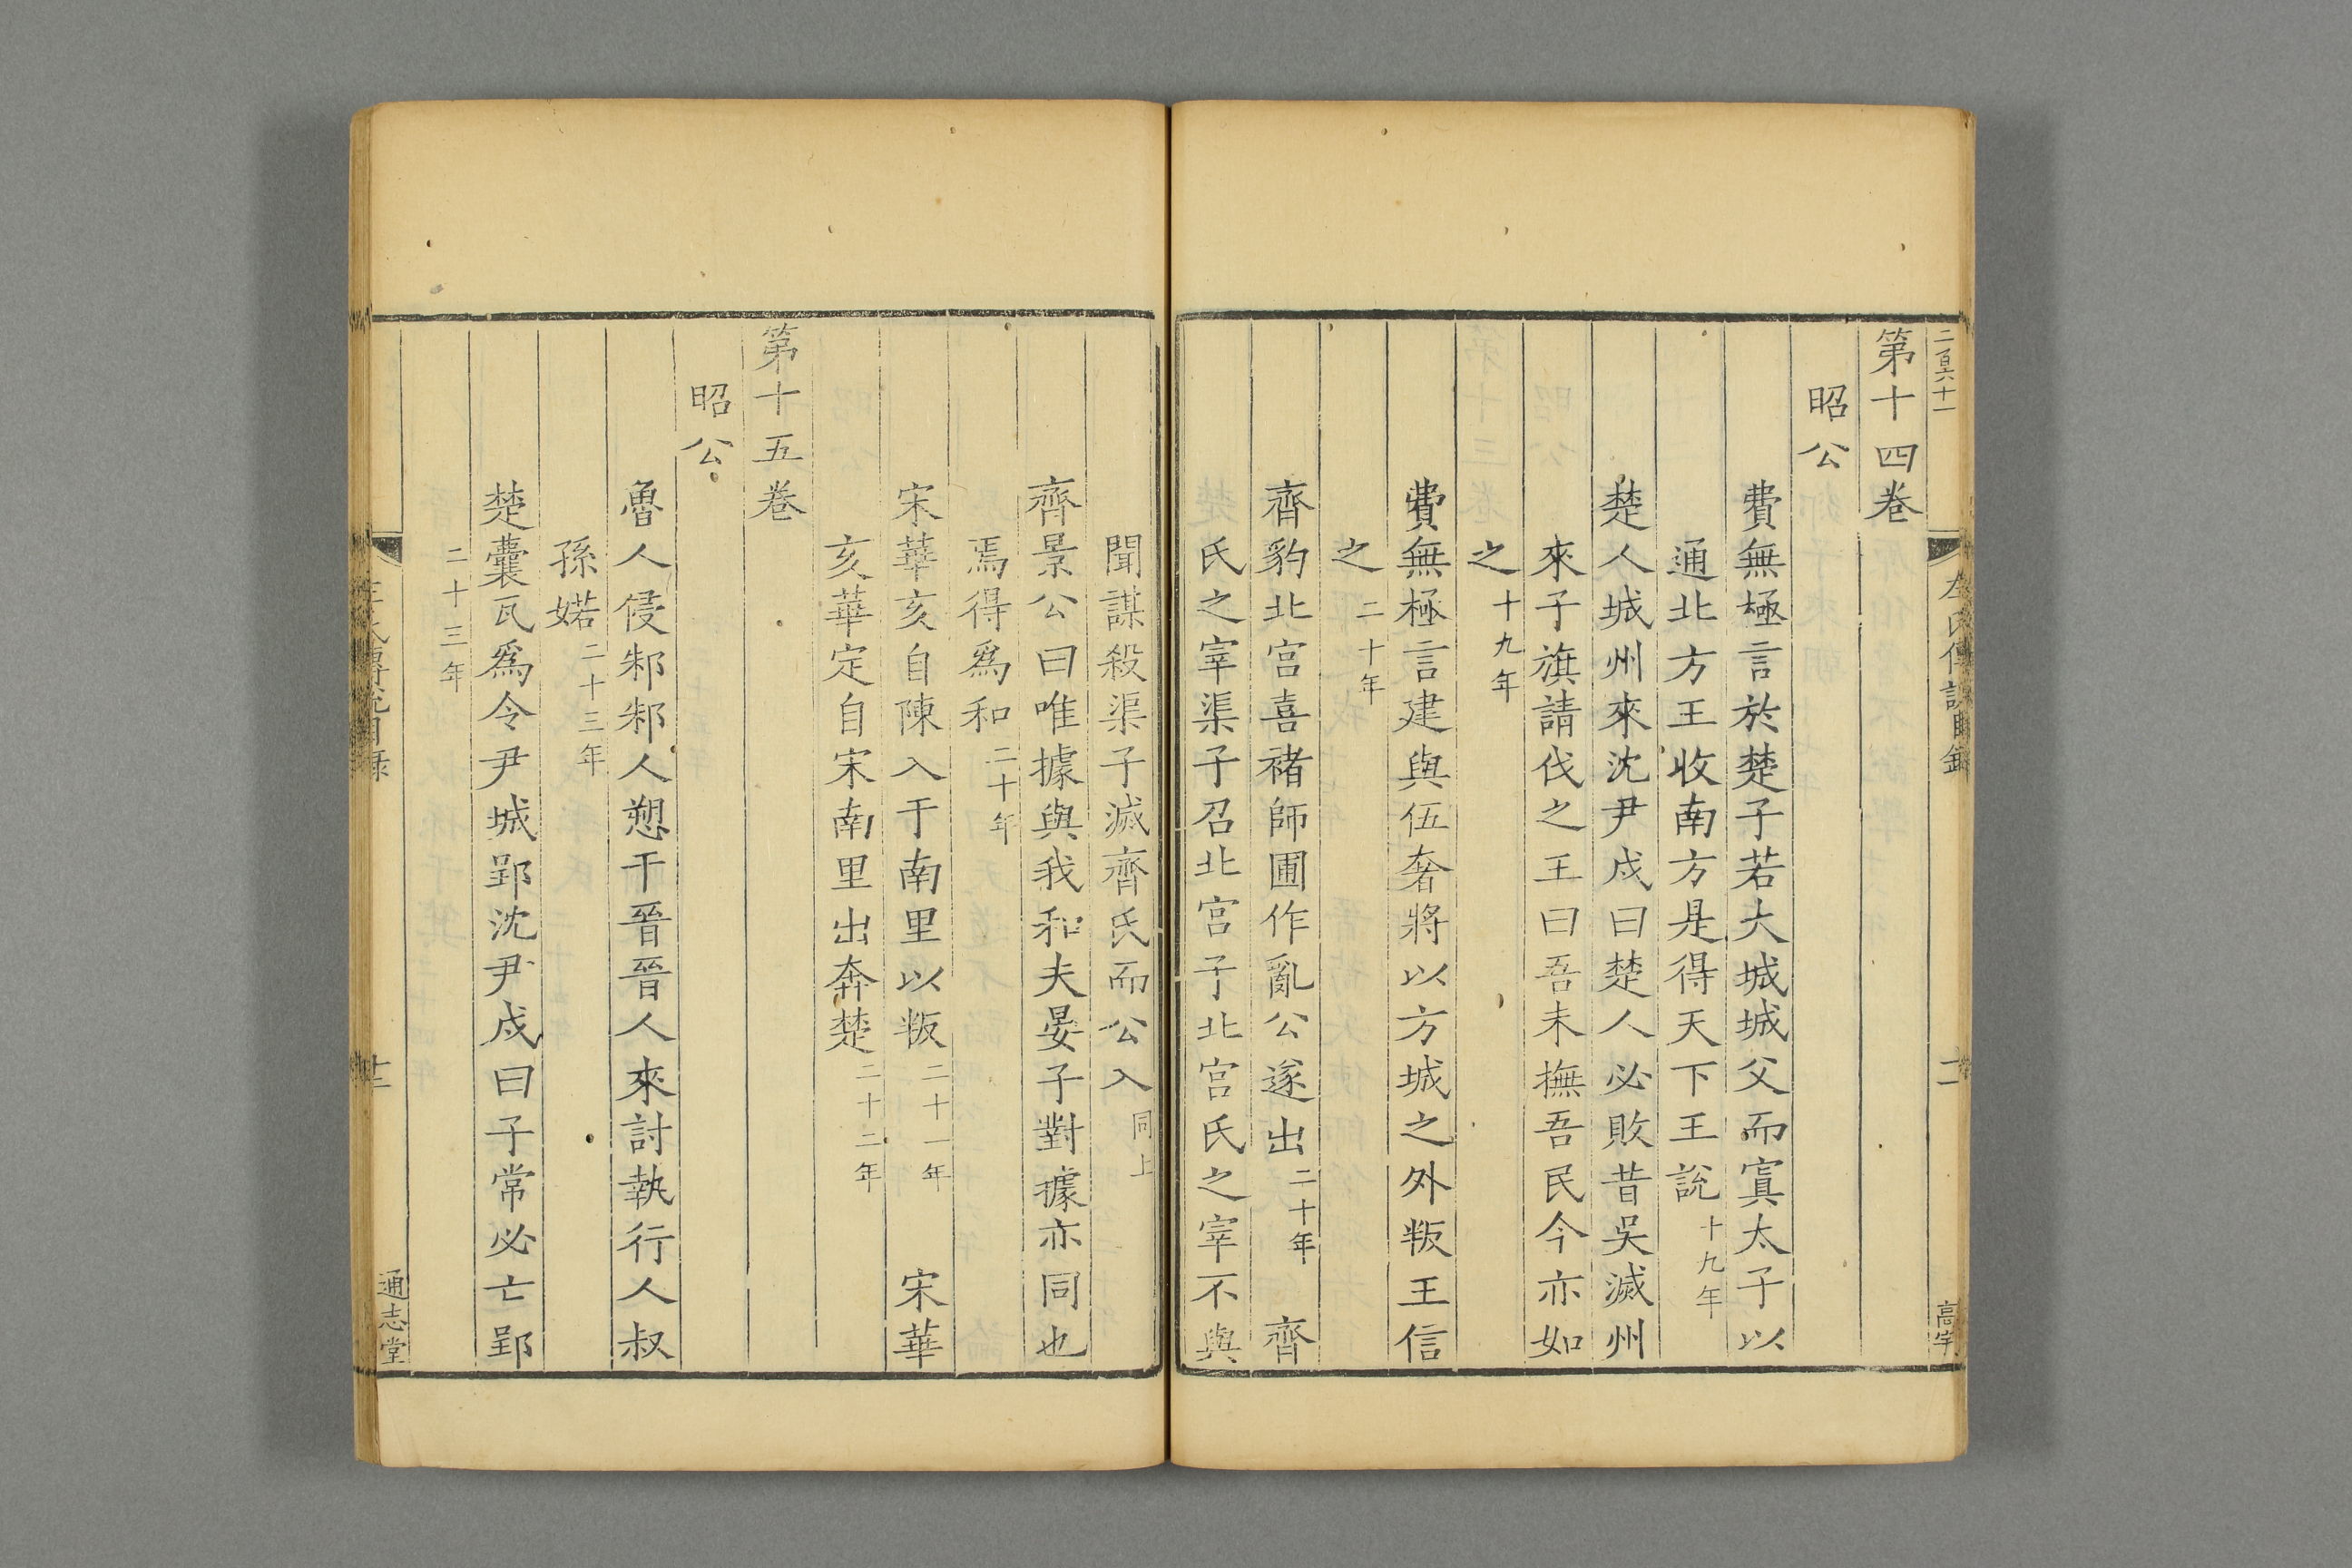 二百六十一
左氏傳說目錄
十一
高宇
第十四卷
昭公
費無極言於楚子若大城城父而寘太子以
通北方王收南方是得天下王說十九年
楚人城州來沈尹戌曰楚人必敗昔吳滅州
來子旗請伐之王曰吾未撫吾民今亦如
之十九年
費無極言建與伍奢將以方城之外叛王信
之二十年
齊豹北宮喜褚師圃作亂公遂出二十年 齊
氏之宰渠子召北宮子北宮氏之宰不與
聞謀殺渠子滅齊氏而公入同上
齊景公曰唯據與我和夫晏子對據亦同也
焉得爲和二十年
宋華亥自陳入于南里以叛二十一年 宋華
亥華定自宋南里出奔楚二十二年
第十五卷
昭公
魯人侵邾邾人愬于晉晉人來討執行人叔
孫婼二十三年
楚囊瓦爲令尹城郢沈尹戌曰子常必亡郢
二十三年
左氏傳說目錄
十二
通志堂